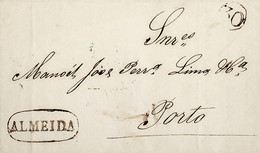 Snres
Manoel José Perra Lima &a
ALMEIDA
Porto